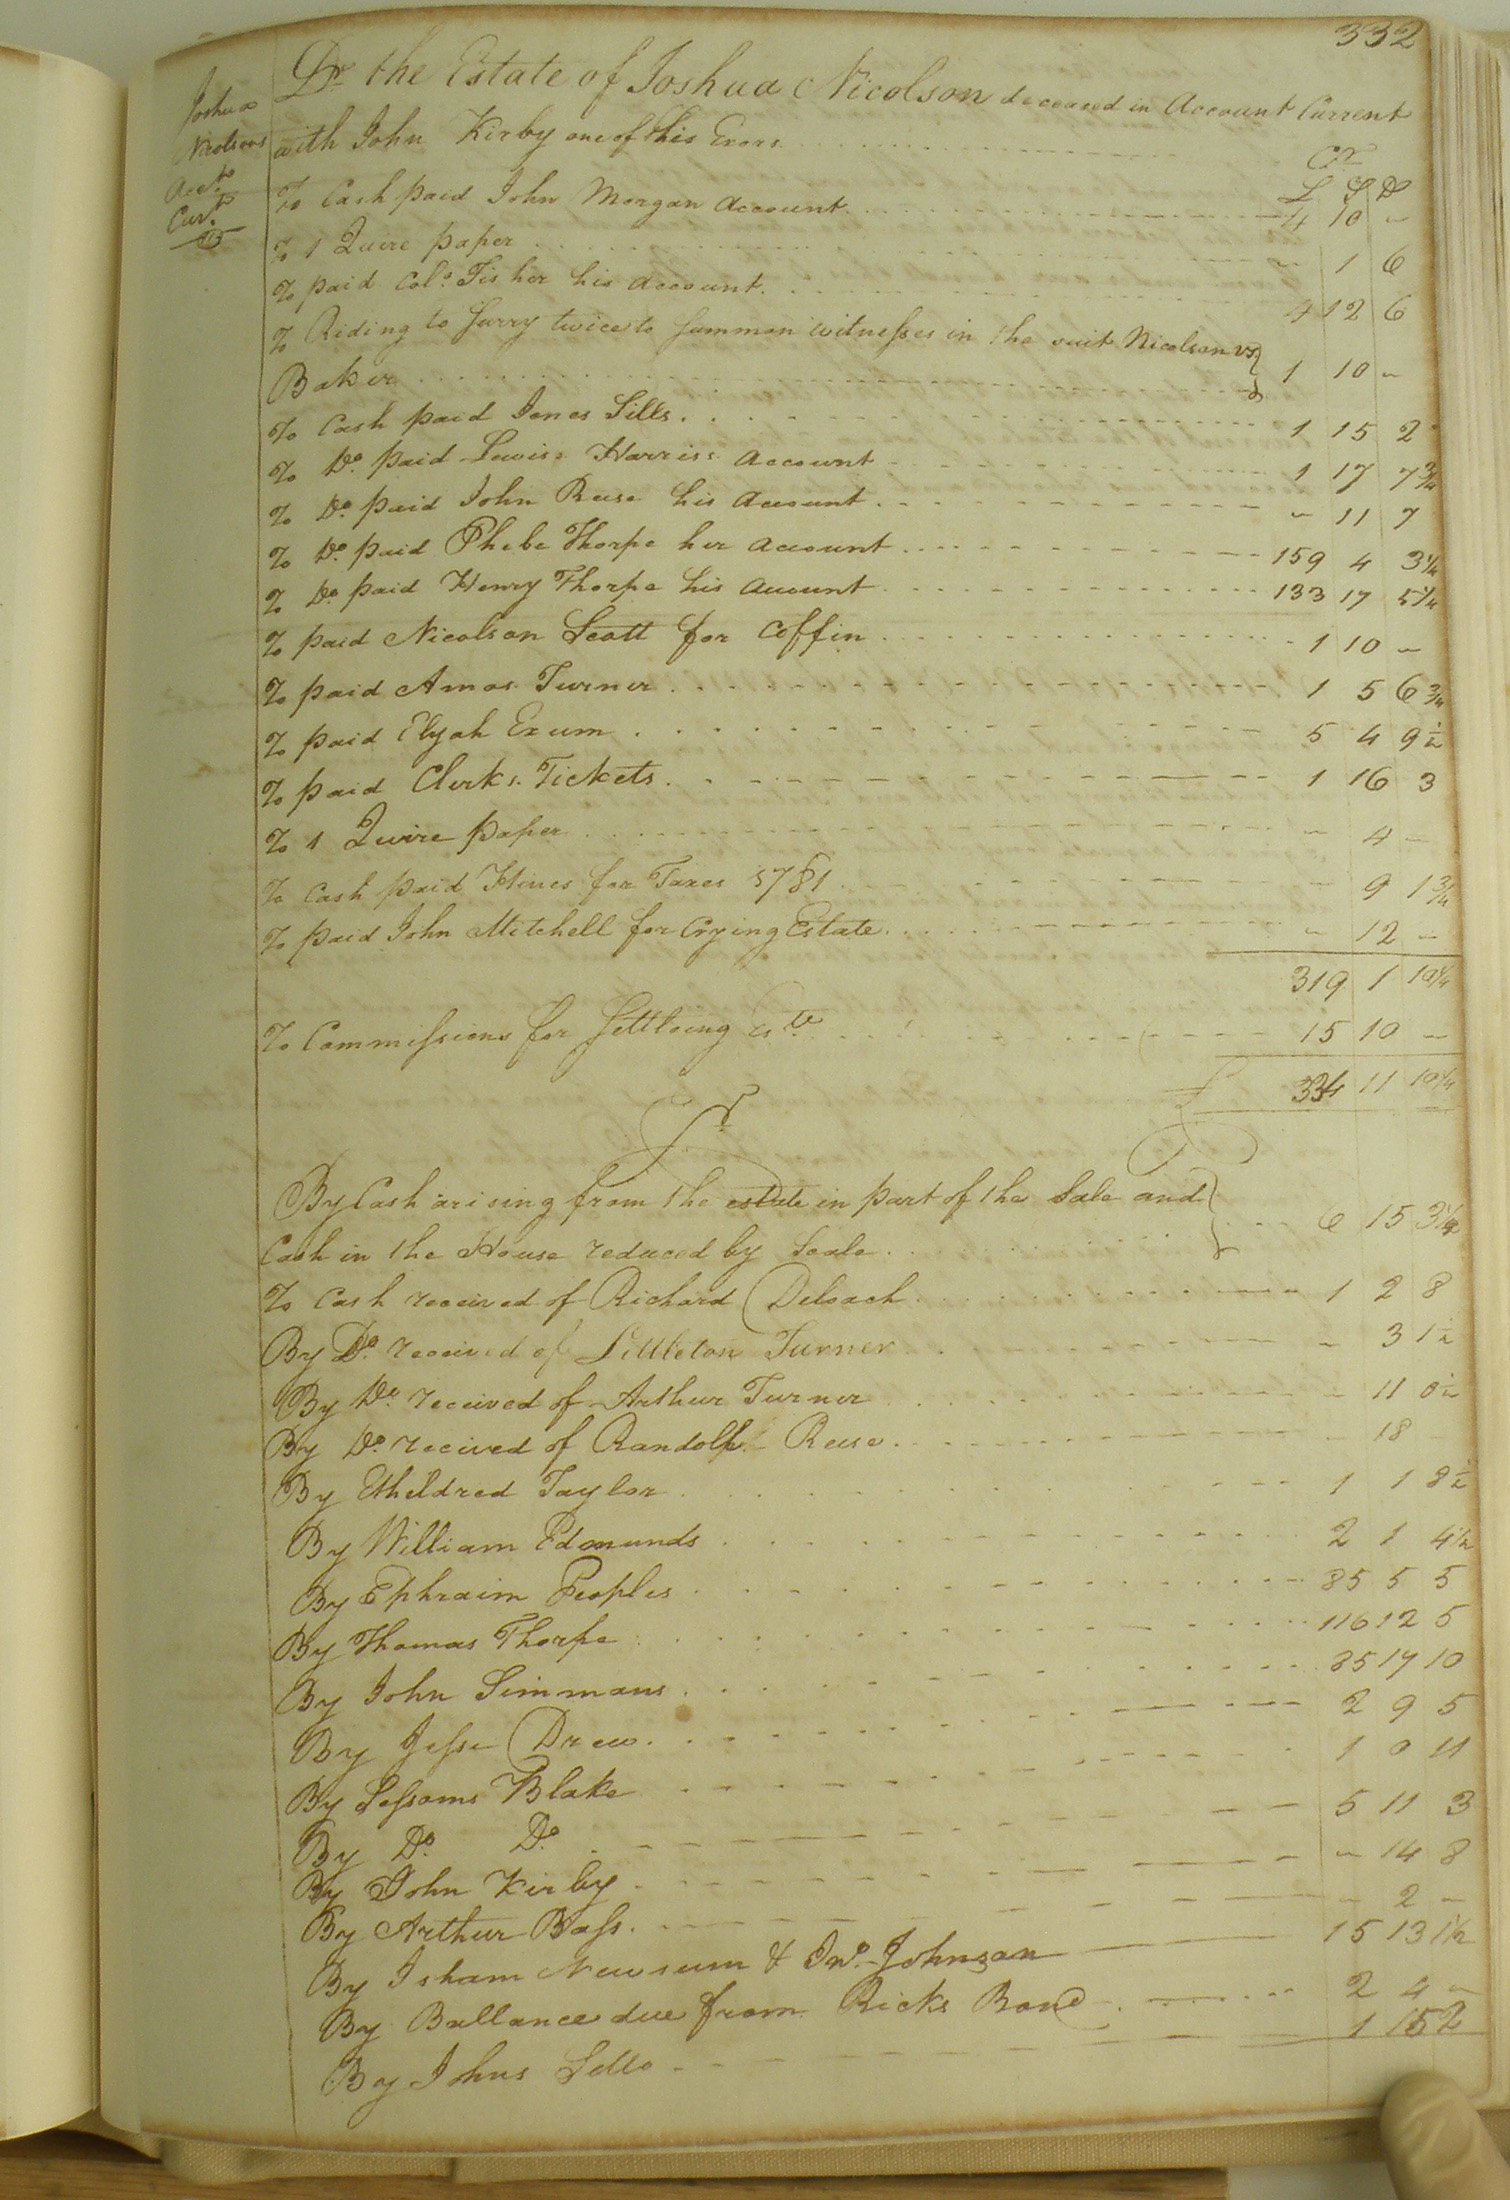 332
Joshua
Nicolsons
Acct.
Curt.
Dr. the Estate of Joshua Nicolson deceased in Account Current
with John Kirby one of his Exors
Cr
£ S D
To Cash paid John Morgan Account 4 10 -
To 1 Quire paper - 1 6
To paid Colo. Fisher his account 4 12 6
To Riding to Surry twice to Summon witnesses in the suit Nicolson vs
Baker 1 10 -
To Cash paid Jones Sills 1 15 2
To Do. paid Lewis Harriss account 1 17 7 3/4
To Do. paid John Reese his account - 11 7
To Do. paid Phebe Thorpe her account 159 4 3 1/4
To Do. paid Henry Thorpe his account 133 17 5 1/4
To paid Nicolson Scott for Coffin 1 10 -
To paid Amos Turner 1 5 6 3/4
To paid Elijah Exum 5 4 9 1/2
To paid Clerks Tickets 1 16 3
To 1 Quire paper - 4 -
To Cash paid Hines for Taxes 1781 - 9 1 3/4
To paid John Mitchell for Crying Estate - 12 -
319 1 10 1/4
To Commissions for Settleing Este. 15 10 -
£ 334 11 10 1/4
Cr
By Cash arising from the estate in part of the Sale and
Cash in the House reduced by Scale 6 15 3 1/4
To Cash received of Richard Deloach 1 2 8
By Do. received of Littleton Turner - 3 1 1/2
By Do. received of Arthur Turner - 11 0 1/2
By Do. recived of Randolph Reese - 18
By Etheldred Taylor 1 1 8 1/2
By William Edmunds 2 1 4 1/2
By Ephraim Peoples 85 5 5
By Thomas Thorpe 116 12 5
By John Simmons 85 17 10
By Jesse Drew 2 9 5
By Sessoms Blake 1 0 11
By Do. Do. 5 11 3
By John Kirby - 14 8
By Arthur Bass - 2 -
By Isham Newsum & Jno. Johnson 15 13 1 1/2
By Ballance due from Ricks Bond 2 4 -
By Johns Sells 1 15 2